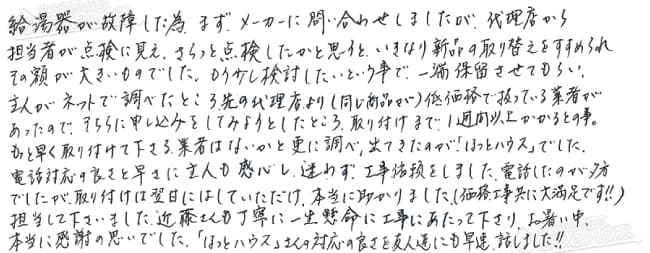 給湯器が故障した為、まず、メーカーに問い合わせしましたが、代理店から
担当者が点検に見え、さらっと点検したかと思うと、いきなり新品の取り替えをすすめられ
その額が大きいものでした。もう少し検討したいという事で、一端保留させてもらい、
主人がネットで調べたところ先の代理店より(同じ商品が)低価格で扱っている業者が
あったので、そちらに申し込みをしてみようとしたところ、取り付けまで1週間以上かかるとの事。
もっと早く取り付けて下さる業者はないかと更に調べ、出てきたのが「ほっとハウス」でした。
電話対応の良さと早さに主人も感心し、迷わず工事依頼をしました。電話したのが夕方
でしたが、取り付けは翌日にはしていただけ、本当に助かりました。(価格工事共に大満足です!!)
担当して下さいました近藤さんも丁寧に一生懸命に工事にあたって下さり、お暑い中、
本当に感謝の思いでした。「ほっとハウス」さんの対応の良さを友人達にも早速、話しました!!